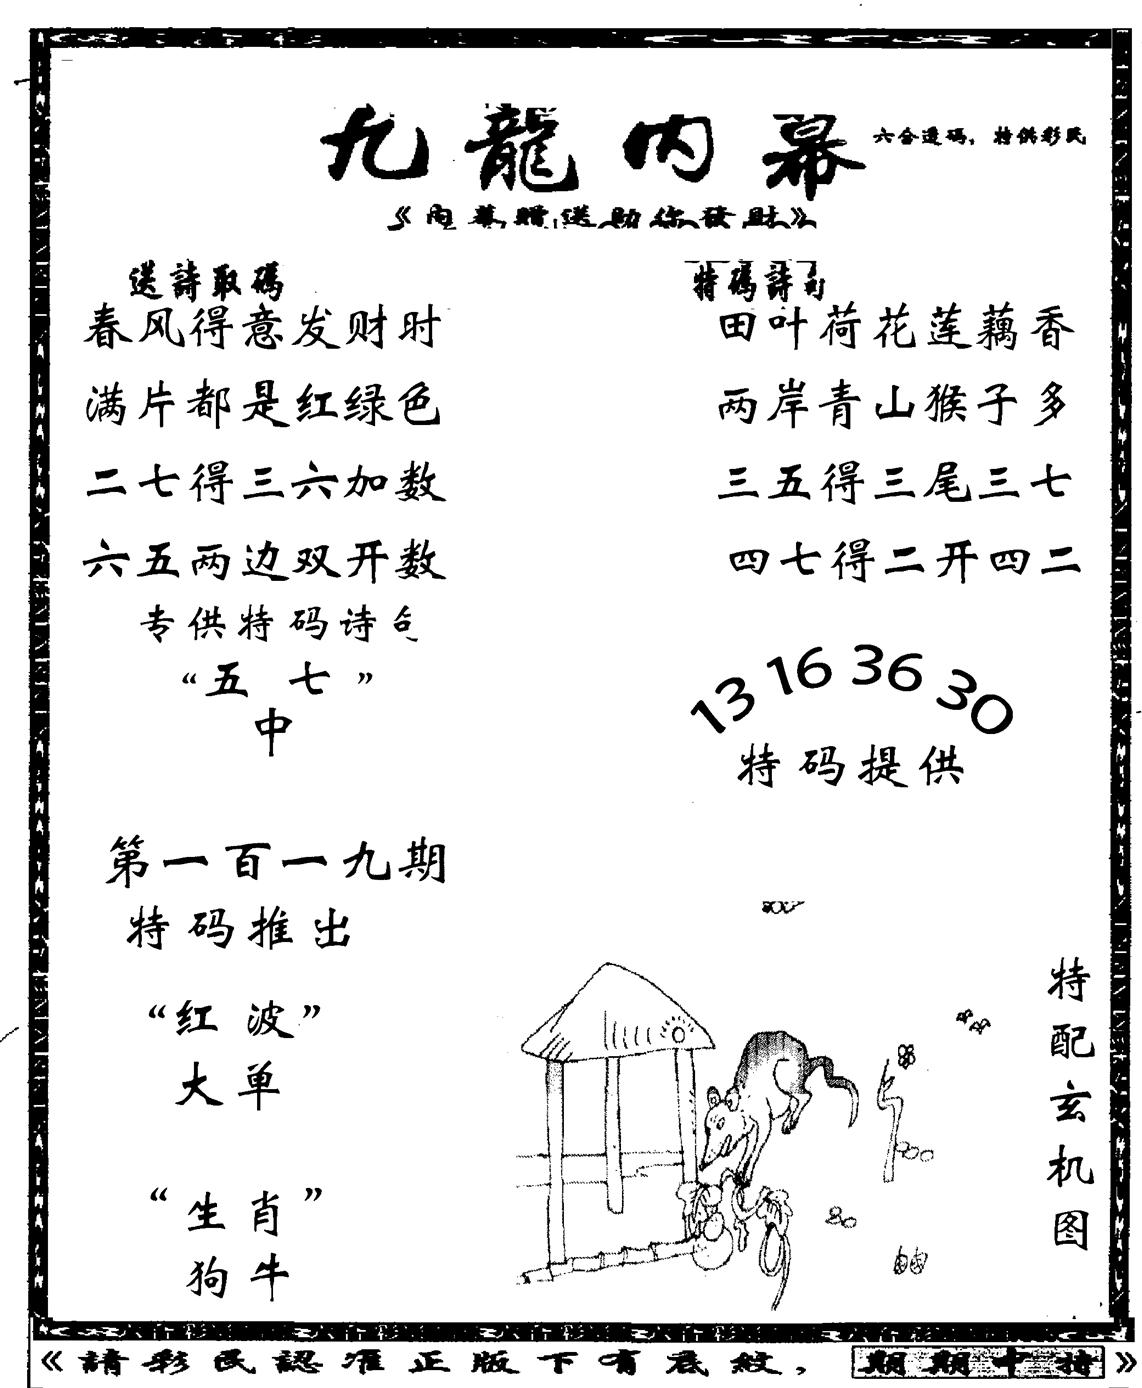 九龍内幕
六合透码,特供彩民
《内幕赠送助你發財》
送詩取碼
春风得意发财时
满片都是红绿色
二七得三六加数
六五两边双开数
专供特码诗句
“五 七”
中
特碼詩句
田叶荷花莲藕香
两岸青山猴子多
三五得三尾三七
四七得二开四二
13 16 36 30
特码提供
第一百一九期
特码推出
“红 波”
大单
“生肖”
狗牛
特配玄机图
《請彩民認准正版下有底紋,期期中特》